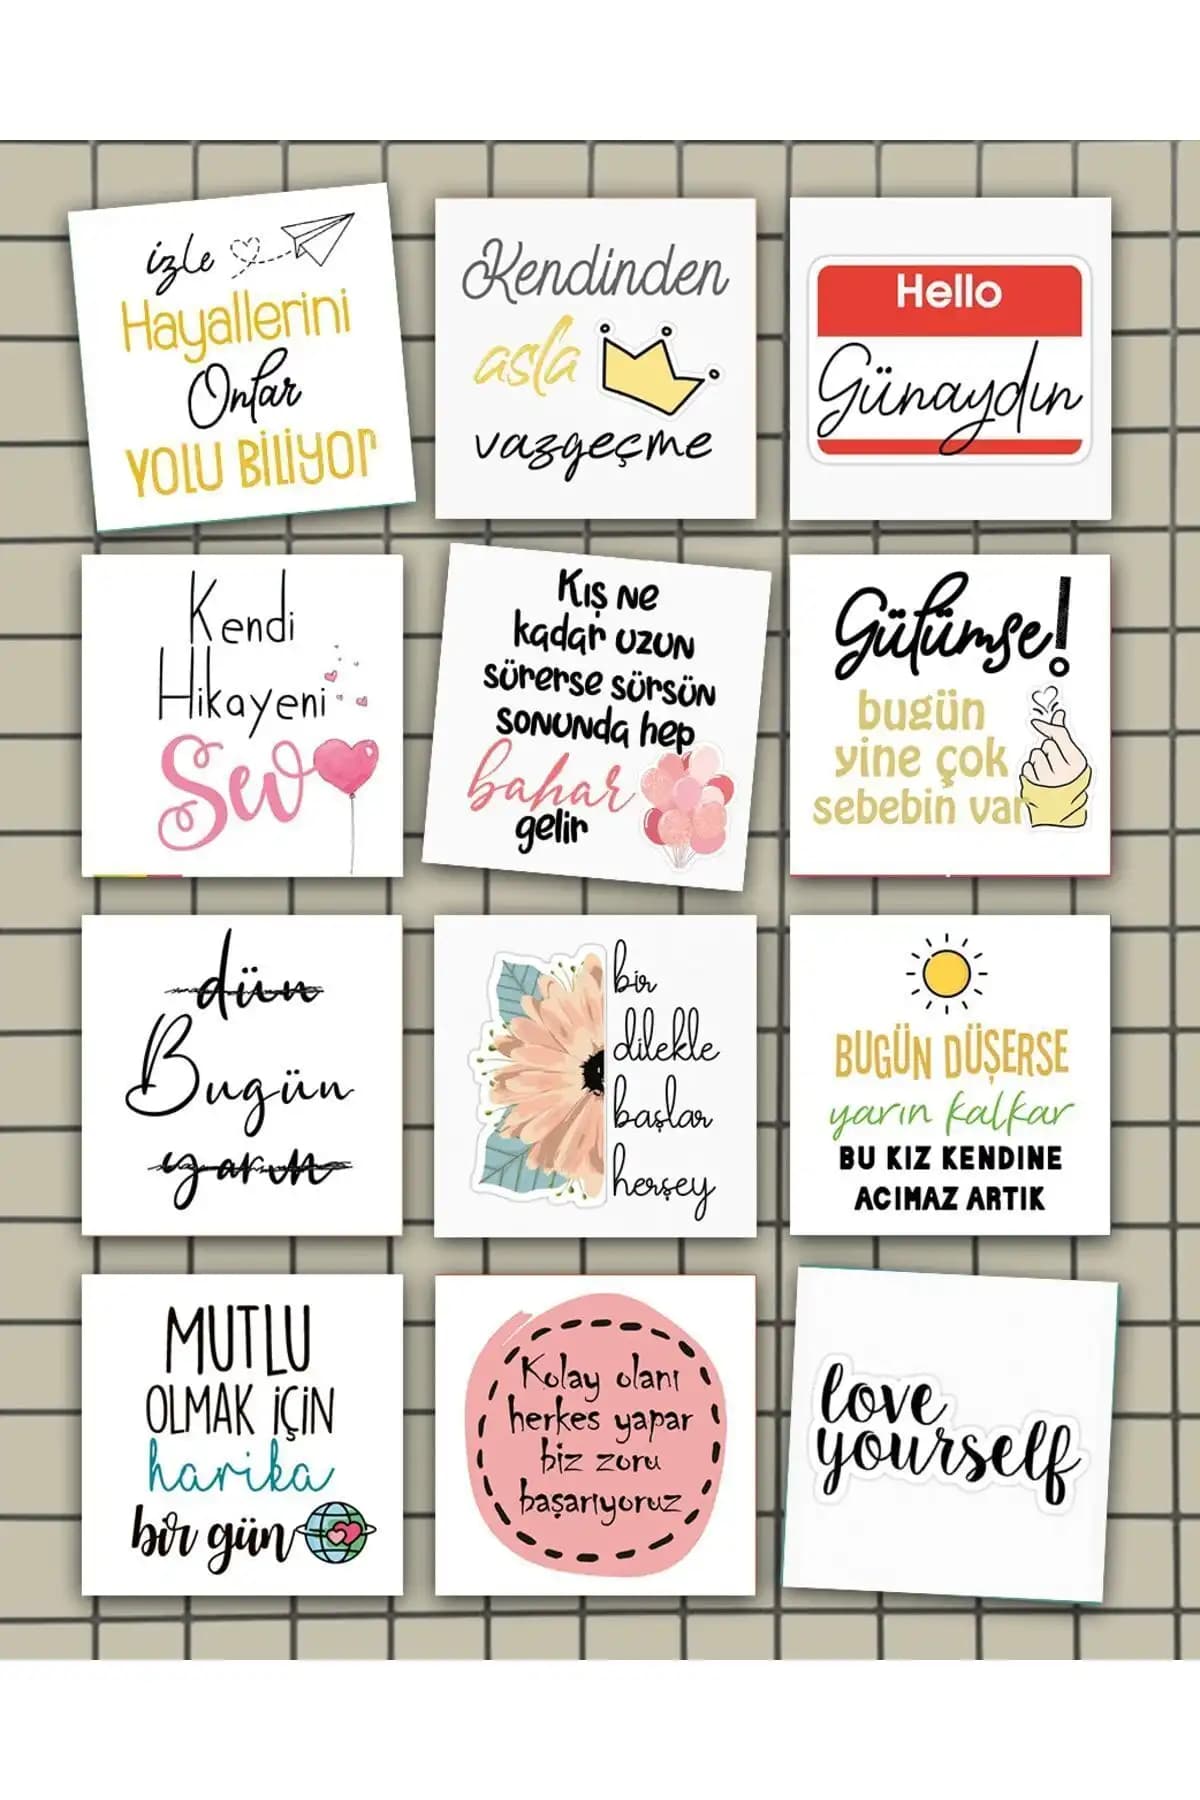 izle
Hayallerini
Onlar
YOLU BİLİYOR
Kendinden
asla
vazgeçme
Hello
Günaydın
Kendi
Hikayeni
Sev
Kış ne
kadar uzun
sürerse sürsün
sonunda hep
bahar
gelir
Gülümse!
bugün
yine çok
sebebin var
dün
Bugün
yarın
bir
dilekle
başlar
herşey
BUGÜN DÜŞERSE
yarın kalkar
BU KIZ KENDINE
ACIMAZ ARTIK
MUTLU
OLMAK İÇİN
harika
bir gün
Kolay olanı
herkes yapar
biz zoru
başarıyoruz
love
yourself